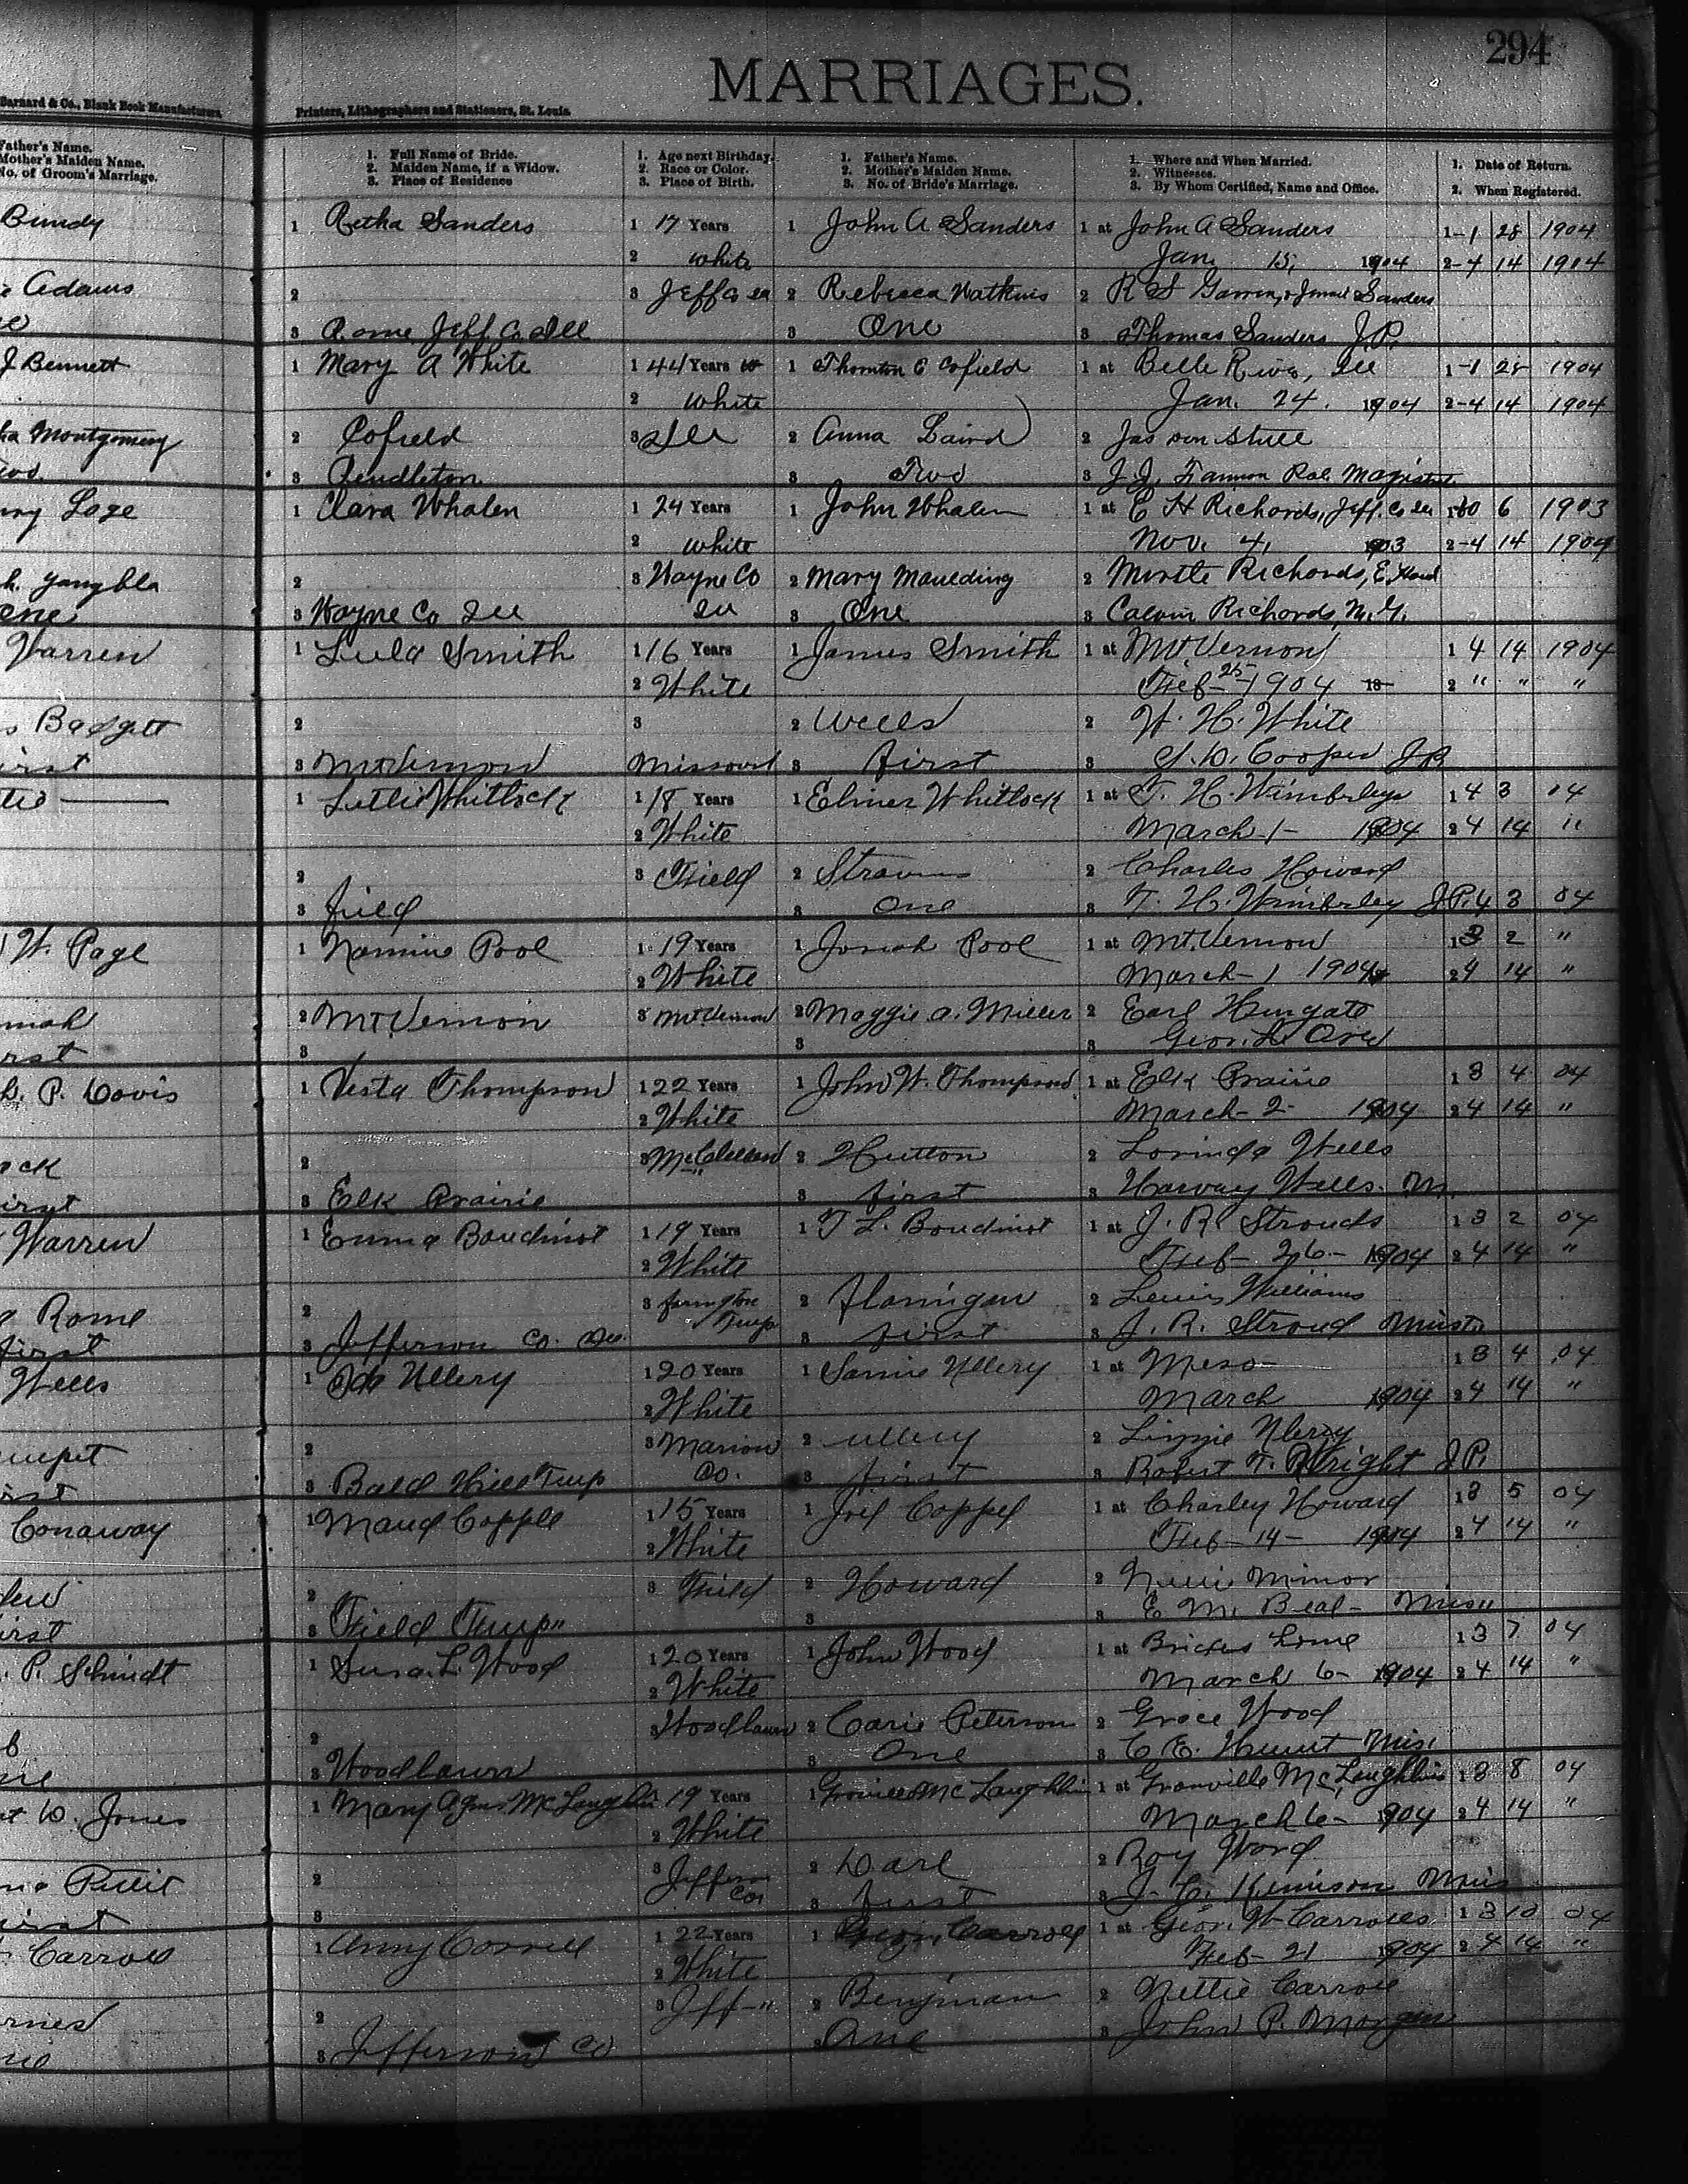 294
MARRIAGES.
Barnard & Co., Blank Book Manufacturers
Printers, Lithographers and Stationers, St. Louis.
Father's Name.
Mother's Maiden Name.
No. of Groom's Marriage.
1. Full Name of Bride.
2. Maiden Name, if a Widow.
3. Place of Residence
1. Age next Birthday.
2. Race or Color.
3. Place of Birth.
1. Father's Name.
2. Mother's Maiden Name.
3. No. of Bride's Marriage.
1. Where and When Married.
2. Witnesses.
3. By Whom Certified, Name and Office.
1. Date of Return.
2. When Registered.
Bundy 1 Retha Sanders 1 17 Years 1 John A Sanders 1 at John A Sanders 1-1 28 1904
2 white Jan. 15, 1904 2-4 14 1904
Adams 2 3 Jeff Co 2 Rebecca Watkins 2 R S & Sanders
3 Rome Jeff Co Ill 3 One 3 Thomas Sanders J.P.
J Bennett 1 Mary A White 1 44 Years 1 Thornton C Cofield 1 at Belle River, Ill 1-1 28 1904
2 white Jan. 24. 1904 2-4 14 1904
Montgomery 2 Cofield 3 Ill 2 Anna Laird 2 Jas
3 Pendleton 3 Two 3 J.J.
Loge 1 Clara Whalen 1 24 Years 1 John Whalen 1 at E H Richards, Jeff. Co Ill 1 6 1903
2 white Nov. 4, 1903 2-4 14 1904
2 3 Wayne Co 2 Mary Maulding 2 Mirtle Richards,
One 3 Wayne Co Ill Ill 3 One 3 Calvin Richards, M.G.
Warren 1 Lula Smith 1 16 Years 1 James Smith 1 at Mt Vernon 1 4 14 1904
2 White Feb- 25- 1904 18 2 " " "
Badgett 2 3 2 Wells 2 W. H. White
3 Mt Vernon Missouri 3 first 3 Cooper JP
1 Lillie Whitlock 1 18 Years 1 Elmer Whitlock 1 at T. H. Wimberleys 1 4 3 04
2 White March-1- 1904 2 4 14 "
2 3 Field 2 2 Charles Howard
3 field 3 One 3 T. H. Wimberley J.P. 4 3 04
W. Page 1 Nannie Pool 1 19 Years 1 Josiah Pool 1 at Mt. Vernon 1 3 2 "
2 White March-1 1904 2 4 14 "
2 Mt Vernon 3 Mt Vernon 2 Maggie A. Miller 2 Earl Hungate
3 3 3 Geo.
P. Davis 1 Vesta Thompson 1 22 Years 1 John W. Thompson 1 at Elk Prairie 1 3 4 04
2 White March-2- 1904 2 4 14 "
2 3 McClellan 2 Hutton 2 Lorinda Wells
3 Elk Prairie 3 first 3 Harvey Wells. M.
Warren 1 Emma Boudinot 1 19 Years 1 T L. Boudinot 1 at J. R. Strouds 1 3 2 04
2 White Feb- 26- 1904 2 4 14 "
Rome 2 3 2 Flanigan 2 Lewis Williams
first 3 Jefferson Co. 3 first 3 J. R. Stroud Minst.
Wells 1 Ida Ullery 1 20 Years 1 Samie Ullery 1 at 1 3 4 .04
2 White March 1904 2 4 14 "
2 3 Marion 2 Ullery 2 Lizzie
3 Bald Hill Twp Co. 3 first 3 Robert T. Wright J.P.
Conaway 1 Maud Copple 1 15 Years 1 Joel Coppel 1 at Charley Howard 1 3 5 04
2 White Feb-14- 1904 2 4 14 "
2 3 Field 2 Howard 2 Minor
3 Field Twp" 3 3 E. M. Beal-
P. Schmidt 1 Susa. L. Wood 1 20 Years 1 John Wood 1 at Brides home 1 3 7 04
2 White March 6- 1904 2 4 14 "
2 3 Woodlawn 2 Carie Peterson 2 Grace Wood
3 Woodlawn 3 One 3 C. E. Mis.
Jones 1 Mary McLaughlin 19 Years 1 McLaughlin 1 at Granville McLaughlin 1 3 8 04
2 White March 6- 1904 2 4 14 "
2 3 Jefferson 2 2 Roy Ward
3 Co. 3 first 3
Carroll 1 22 Years 1 Geo. Carroll 1 at Geo. W Carrolls 1 3 10 04
2 White Feb- 21 1904 2 4 14 "
2 3 Jeff-" 2 Benjman 2 Nettie Carroll
3 Jefferson Co 3 One 3 John P. Morgan